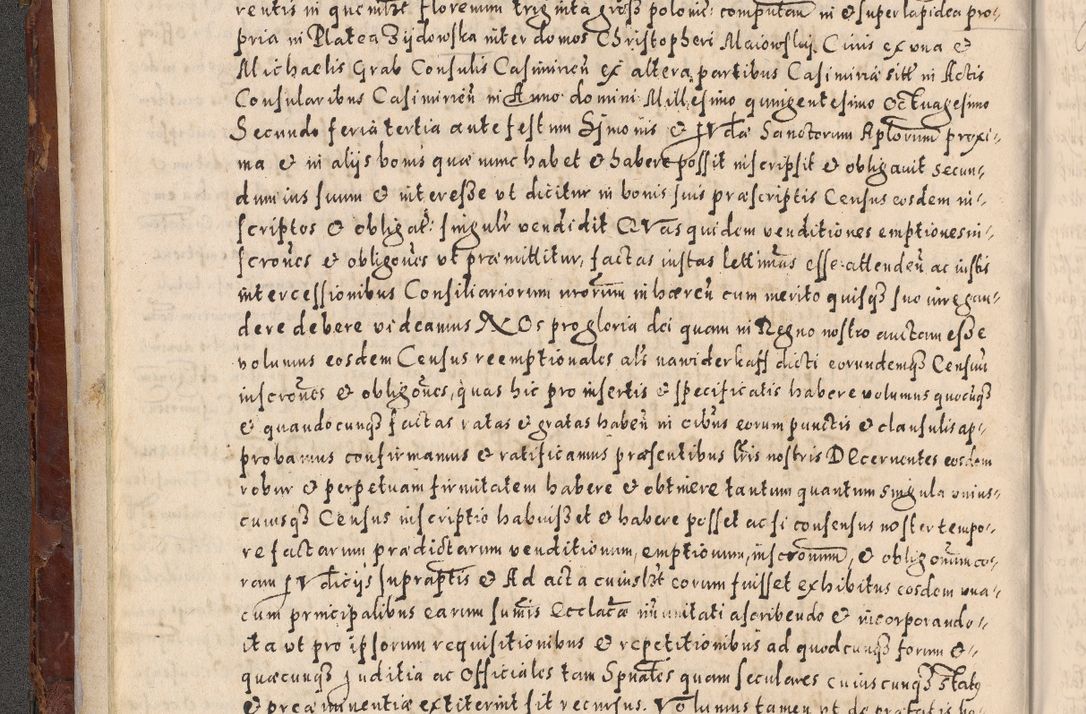 rentis in quemlibet florenum triginta gross polonic: computan in et super lapidea pro-
pria in Platea Zijdowska inter domos Christopheri Maiowskij Civis ex una et
Michaelis Grab Consulis Casimirien ex altera partibus Casimiriæ sitt in Actis
Consularibus Casimirien in Anno domini Millesimo quingentesimo Octuagesimo
Secundo feria tertia ante festum Simonis et Iudæ Sanctorum Aplorum proxi-
ma et in alijs bonis quæ nunc habet et habere possit inscripsit et obligauit secun-
dum ius suum et interesse ut dicitur in bonis suis præscriptis Census eosdem in-
scriptos et obligat: singulr vendidit QVas quidem venditiones emptiones in-
scrones et obligones ut præmittitur, factas iustas lettimas esse attenden ac iustis
intercessionibus Consiliariorum nrorum in hæren cum merito quisq suo in regan-
dere debere videamus NOs pro gloria dei quam in Regno nostro auctam esse
volumus eosdem Census reemptionales als nawiderkaff dicti eorundemq Censuu
inscrones et obligones, quas hic pro insertis et specificatis habere volumus quocuqs
et quandocunq factas ratas et gratas haben in oibus eorum punctis et clausulis ap-
probamus confirmamus et ratificamus præsentibus lris nostris DEcernentes eosdem
robur et perpetuam firmitatem habere et obtinere tantum quantum singula vnius-
cuiusq Census inscriptio habuisset et habere posset ac si consensus noster tempo-
re factarum prædictarum venditionum, emptionum, inscronum, et obligonum co-
ram Iudicijs suprascriptis et Ad acta cuiuslibet eorum fuisset exhibitus eosdem una
cum principalibus earum summis Ecclacæ immunitati ascribendo et incorporando
ita ut pro ipsorum requisitionibus et repetitionibus ad quodcunq forum et
quæcunq Iuditia ac Officiales tam Spuales quam seculares cuiuscunq status
et præeminentiæ extiterint sit recursus. Volumus tamen ut de præfatis